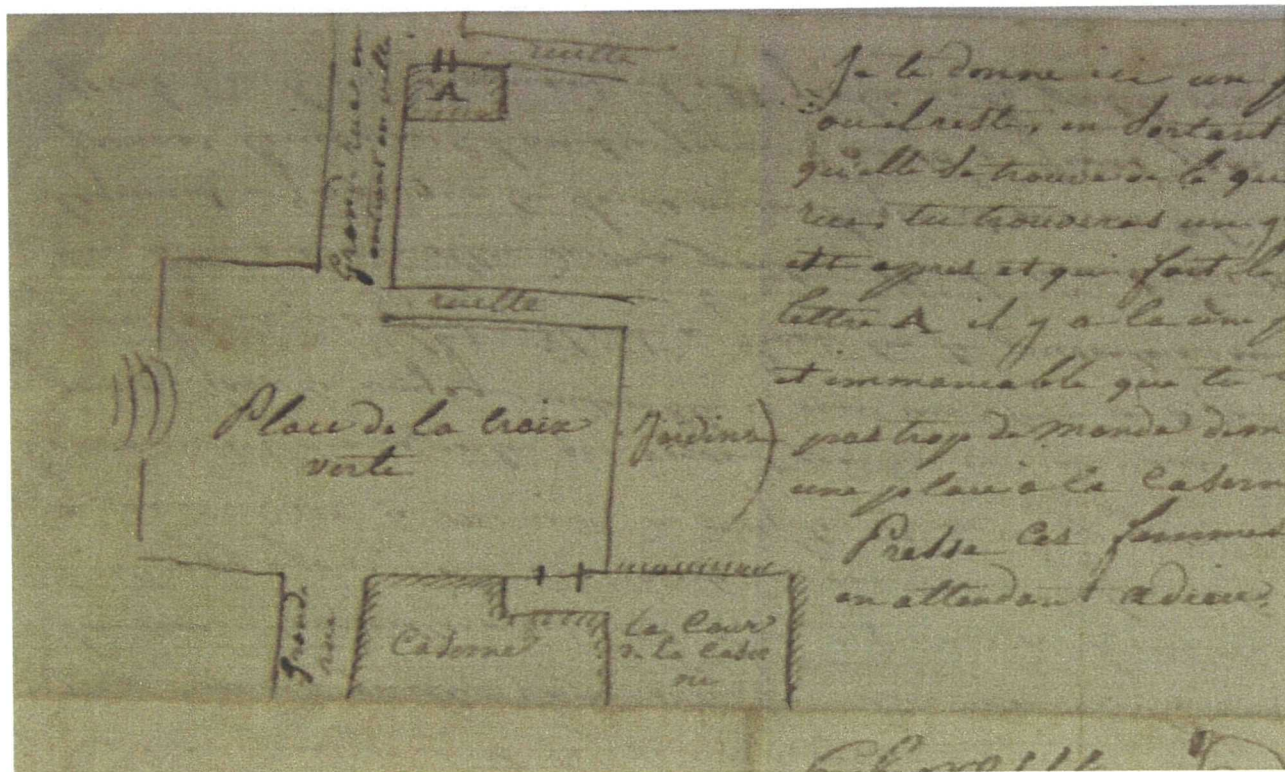 ruette
Grande rue en
montant en ville
A
ruette
Place de la croix
verte
Jardins
Grand
rue
Caserne
la Cour
de la Caser
ne
Je te donne ici un
ou il reste, en Sortant
qu'elle Se trouve de la
rue, tu trouveras un
est apres et qui fait
lettre A il y a la une
et immancable que tu
pas trop de monde
une place a la Casern
Presse Ces femmes
en attendant adieu.